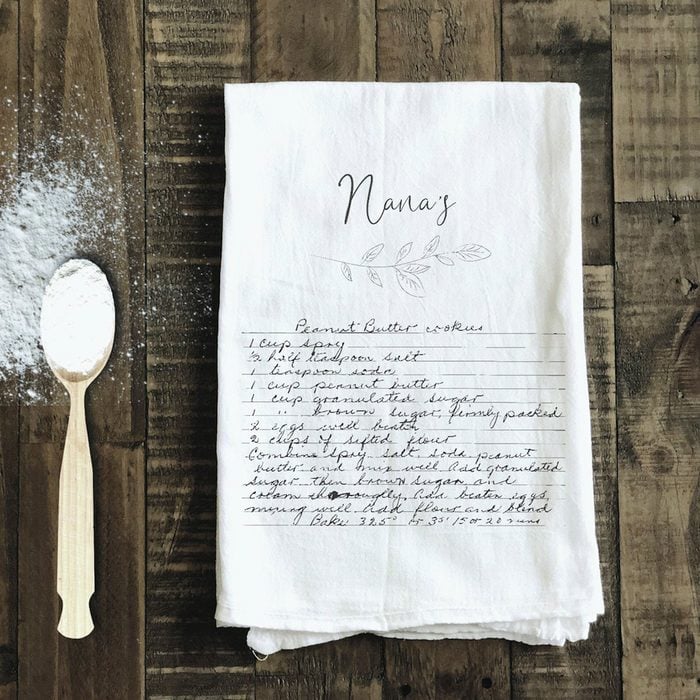 Nana's
Peanut Butter cookies
1 cup spry
½ half teaspoon salt
1 teaspoon soda
1 cup peanut butter
1 cup granulated sugar
1 " brown sugar, firmly packed
2 eggs well beaten
2 cups of sifted flour
Combine spry salt, soda, peanut
butter and mix well. Add granulated
sugar then brown sugar and
cream thoroughly, Add beaten eggs,
mixing well. Add flour and blend
Bake 325° or 35' 15 or 20 mins